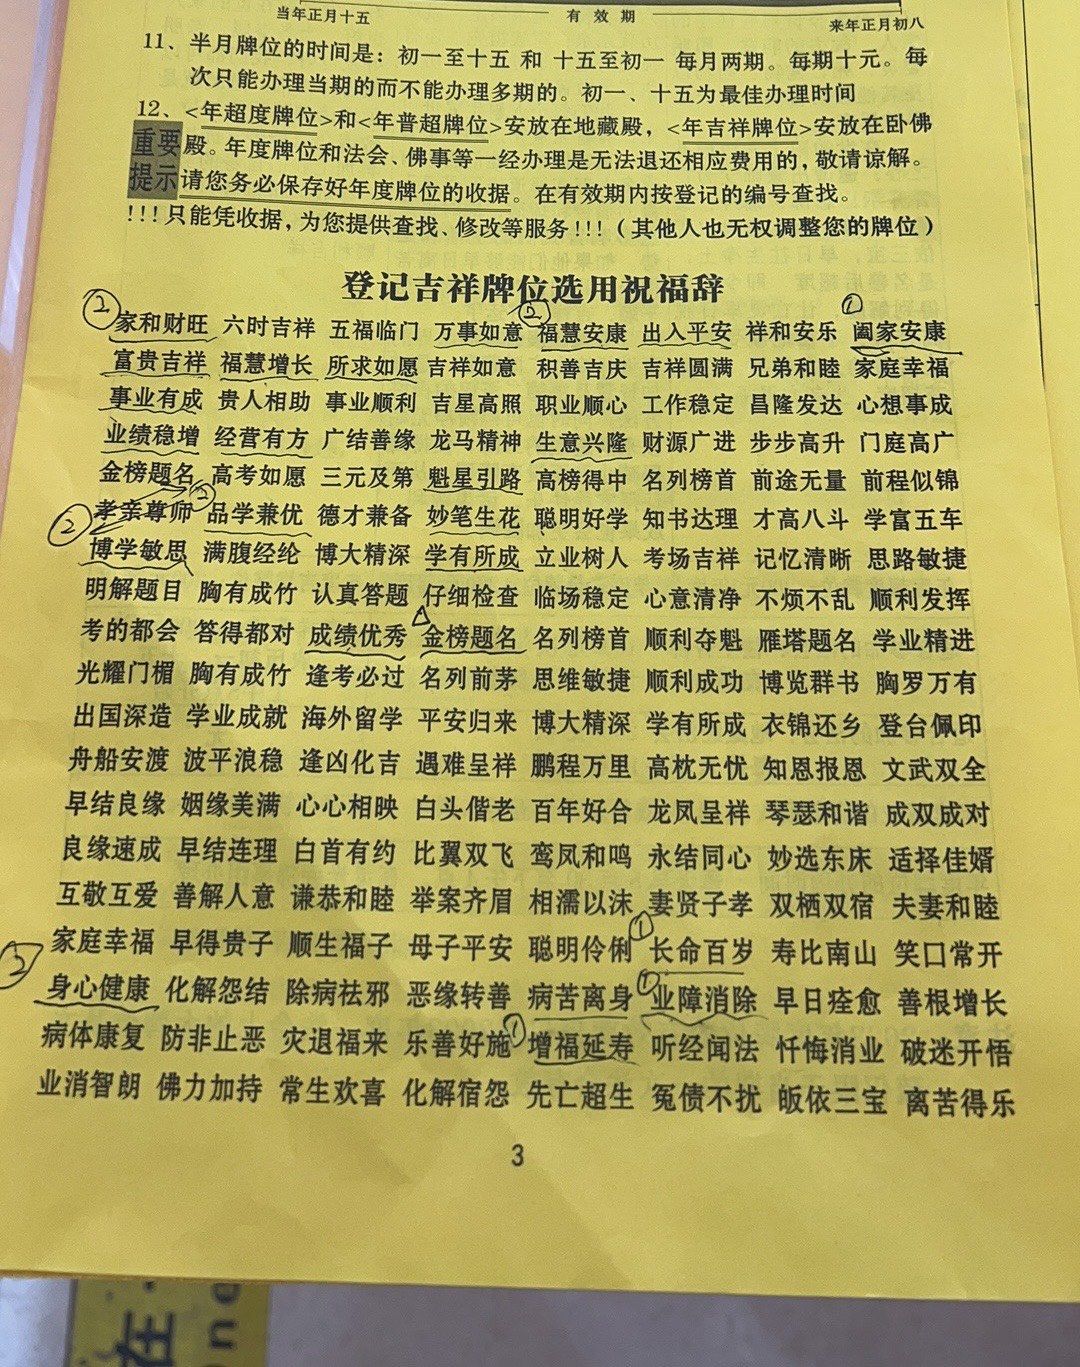 当年正月十五 有效期 来年正月初八
11、半月牌位的时间是：初一至十五 和 十五至初一 每月两期。每期十元。每
次只能办理当期的而不能办理多期的。初一、十五为最佳办理时间
12、<年超度牌位>和<年普超牌位>安放在地藏殿，<年吉祥牌位>安放在卧佛
重要 殿。年度牌位和法会、佛事等一经办理是无法退还相应费用的，敬请谅解。
提示 请您务必保存好年度牌位的收据。在有效期内按登记的编号查找。
!!!只能凭收据，为您提供查找、修改等服务!!!（其他人也无权调整您的牌位）
登记吉祥牌位选用祝福辞
② 家和财旺 六时吉祥 五福临门 万事如意 ② 福慧安康 出入平安 祥和安乐 ① 阖家安康
富贵吉祥 福慧增长 所求如愿 吉祥如意 积善吉庆 吉祥圆满 兄弟和睦 家庭幸福
事业有成 贵人相助 事业顺利 吉星高照 职业顺心 工作稳定 昌隆发达 心想事成
业绩稳增 经营有方 广结善缘 龙马精神 生意兴隆 财源广进 步步高升 门庭高广
金榜题名 高考如愿 三元及第 魁星引路 高榜得中 名列榜首 前途无量 前程似锦
② 孝亲尊师 ② 品学兼优 德才兼备 妙笔生花 聪明好学 知书达理 才高八斗 学富五车
博学敏思 满腹经纶 博大精深 学有所成 立业树人 考场吉祥 记忆清晰 思路敏捷
明解题目 胸有成竹 认真答题 仔细检查 临场稳定 心意清净 不烦不乱 顺利发挥
考的都会 答得都对 成绩优秀 金榜题名 名列榜首 顺利夺魁 雁塔题名 学业精进
光耀门楣 胸有成竹 逢考必过 名列前茅 思维敏捷 顺利成功 博览群书 胸罗万有
出国深造 学业成就 海外留学 平安归来 博大精深 学有所成 衣锦还乡 登台佩印
舟船安渡 波平浪稳 逢凶化吉 遇难呈祥 鹏程万里 高枕无忧 知恩报恩 文武双全
早结良缘 姻缘美满 心心相映 白头偕老 百年好合 龙凤呈祥 琴瑟和谐 成双成对
良缘速成 早结连理 白首有约 比翼双飞 鸾凤和鸣 永结同心 妙选东床 适择佳婿
互敬互爱 善解人意 谦恭和睦 举案齐眉 相濡以沫 妻贤子孝 双栖双宿 夫妻和睦
家庭幸福 早得贵子 顺生福子 母子平安 聪明伶俐 ① 长命百岁 寿比南山 笑口常开
身心健康 化解怨结 除病祛邪 恶缘转善 病苦离身 ① 业障消除 早日痊愈 善根增长
病体康复 防非止恶 灾退福来 乐善好施 ① 增福延寿 听经闻法 忏悔消业 破迷开悟
业消智朗 佛力加持 常生欢喜 化解宿怨 先亡超生 冤债不扰 皈依三宝 离苦得乐
3
在